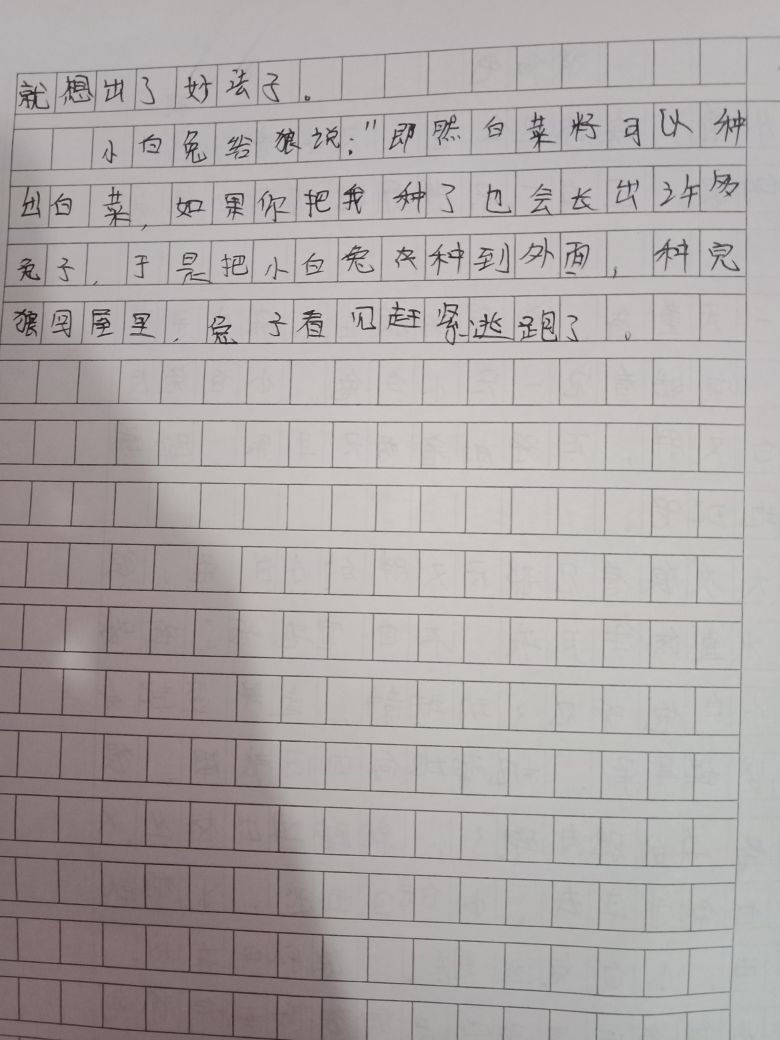 就想出了好法子。
小白兔给狼说："即然白菜籽可以种
出白菜，如果你把我种了也会长出许多
兔子，于是把小白兔种到外面，种完
狼回屋里，兔子看见赶紧逃跑了。